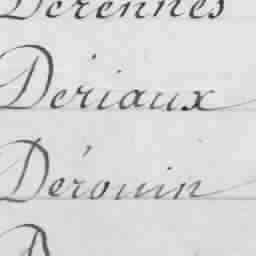 Derennes
Deriaux
Dérouin